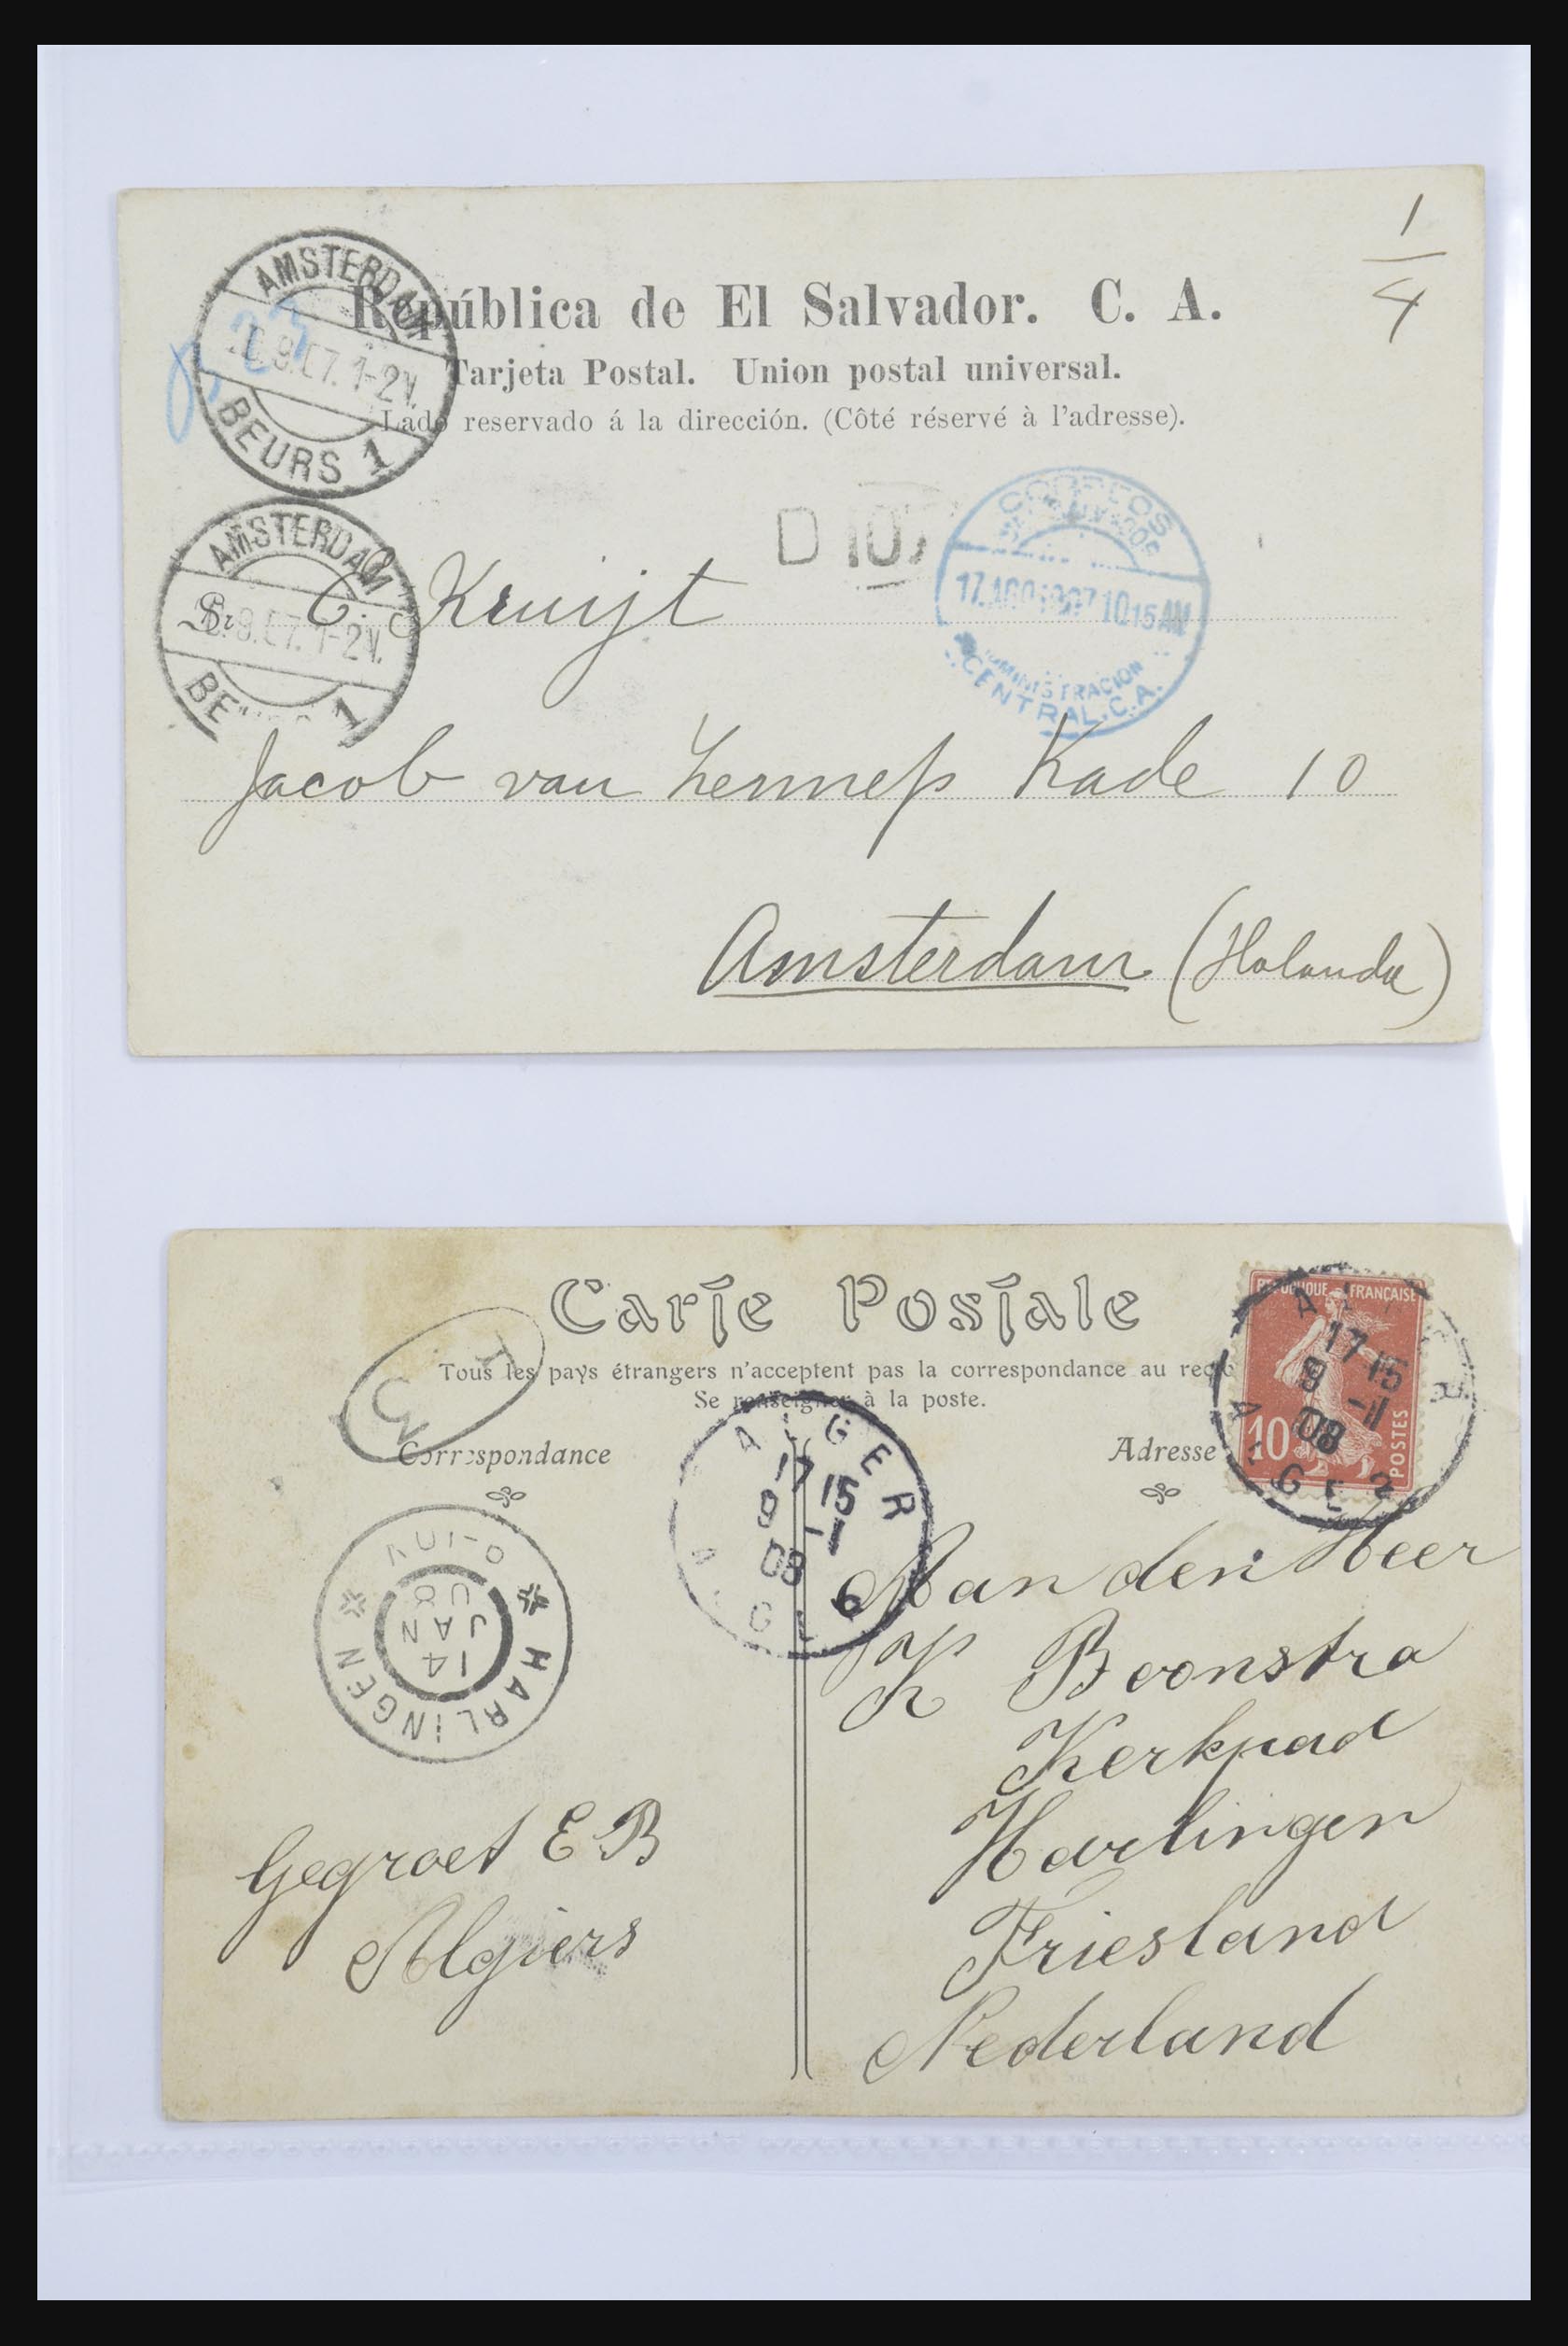 1
4
AMSTERDAM
9.07. 1-2V.
BEURS 1
República de El Salvador. C. A.
Tarjeta Postal. Union postal universal.
Lado reservado á la dirección. (Côté réservé à l'adresse).
D 10
CORREOS
17.AGO 1907 10 15 AM
ADMINISTRACION
CENTRAL. C.A.
AMSTERDAM
9.07. 1-2V.
1
Sr C. Kruijt
Jacob van Lennep Kade 10
Amsterdam (Holanda)
Carte Postale
Tous les pays étrangers n'acceptent pas la correspondance au recto
Se renseigner à la poste.
Correspondance
Adresse
REPUBLIQUE FRANCAISE
10
POSTES
17 15
9 -11
08
ALGER
17 15
9 -1
08
HARLINGEN
14
JAN
08
Aan den Heer
K Boonstra
Kerkpad
Harlingen
Friesland
Nederland
Gegroet E B
Algiers